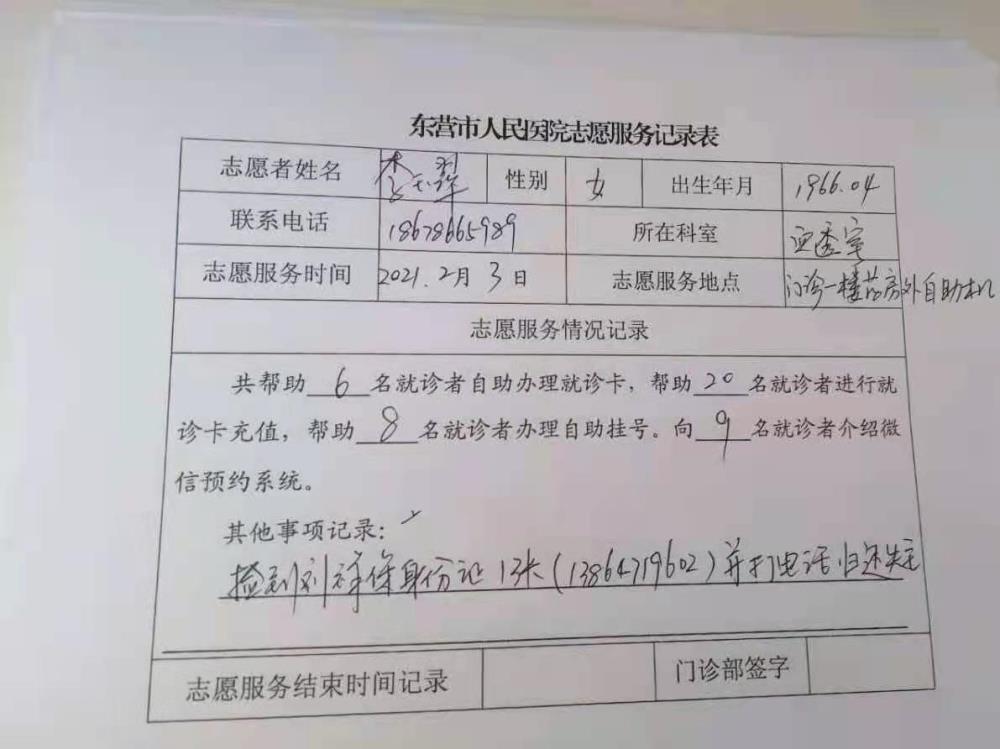 东营市人民医院志愿服务记录表
志愿者姓名 李 性别 女 出生年月 1966.04
联系电话 18678665989 所在科室 血透室
志愿服务时间 2021.2月3日 志愿服务地点 门诊一楼药房外自助机
志愿服务情况记录
共帮助 6 名就诊者自助办理就诊卡，帮助 20 名就诊者进行就
诊卡充值，帮助 8 名就诊者办理自助挂号。向 9 名就诊者介绍微
信预约系统。
其他事项记录：
捡到刘祥保身份证1张（13864719602）并打电话归还失主
志愿服务结束时间记录 门诊部签字